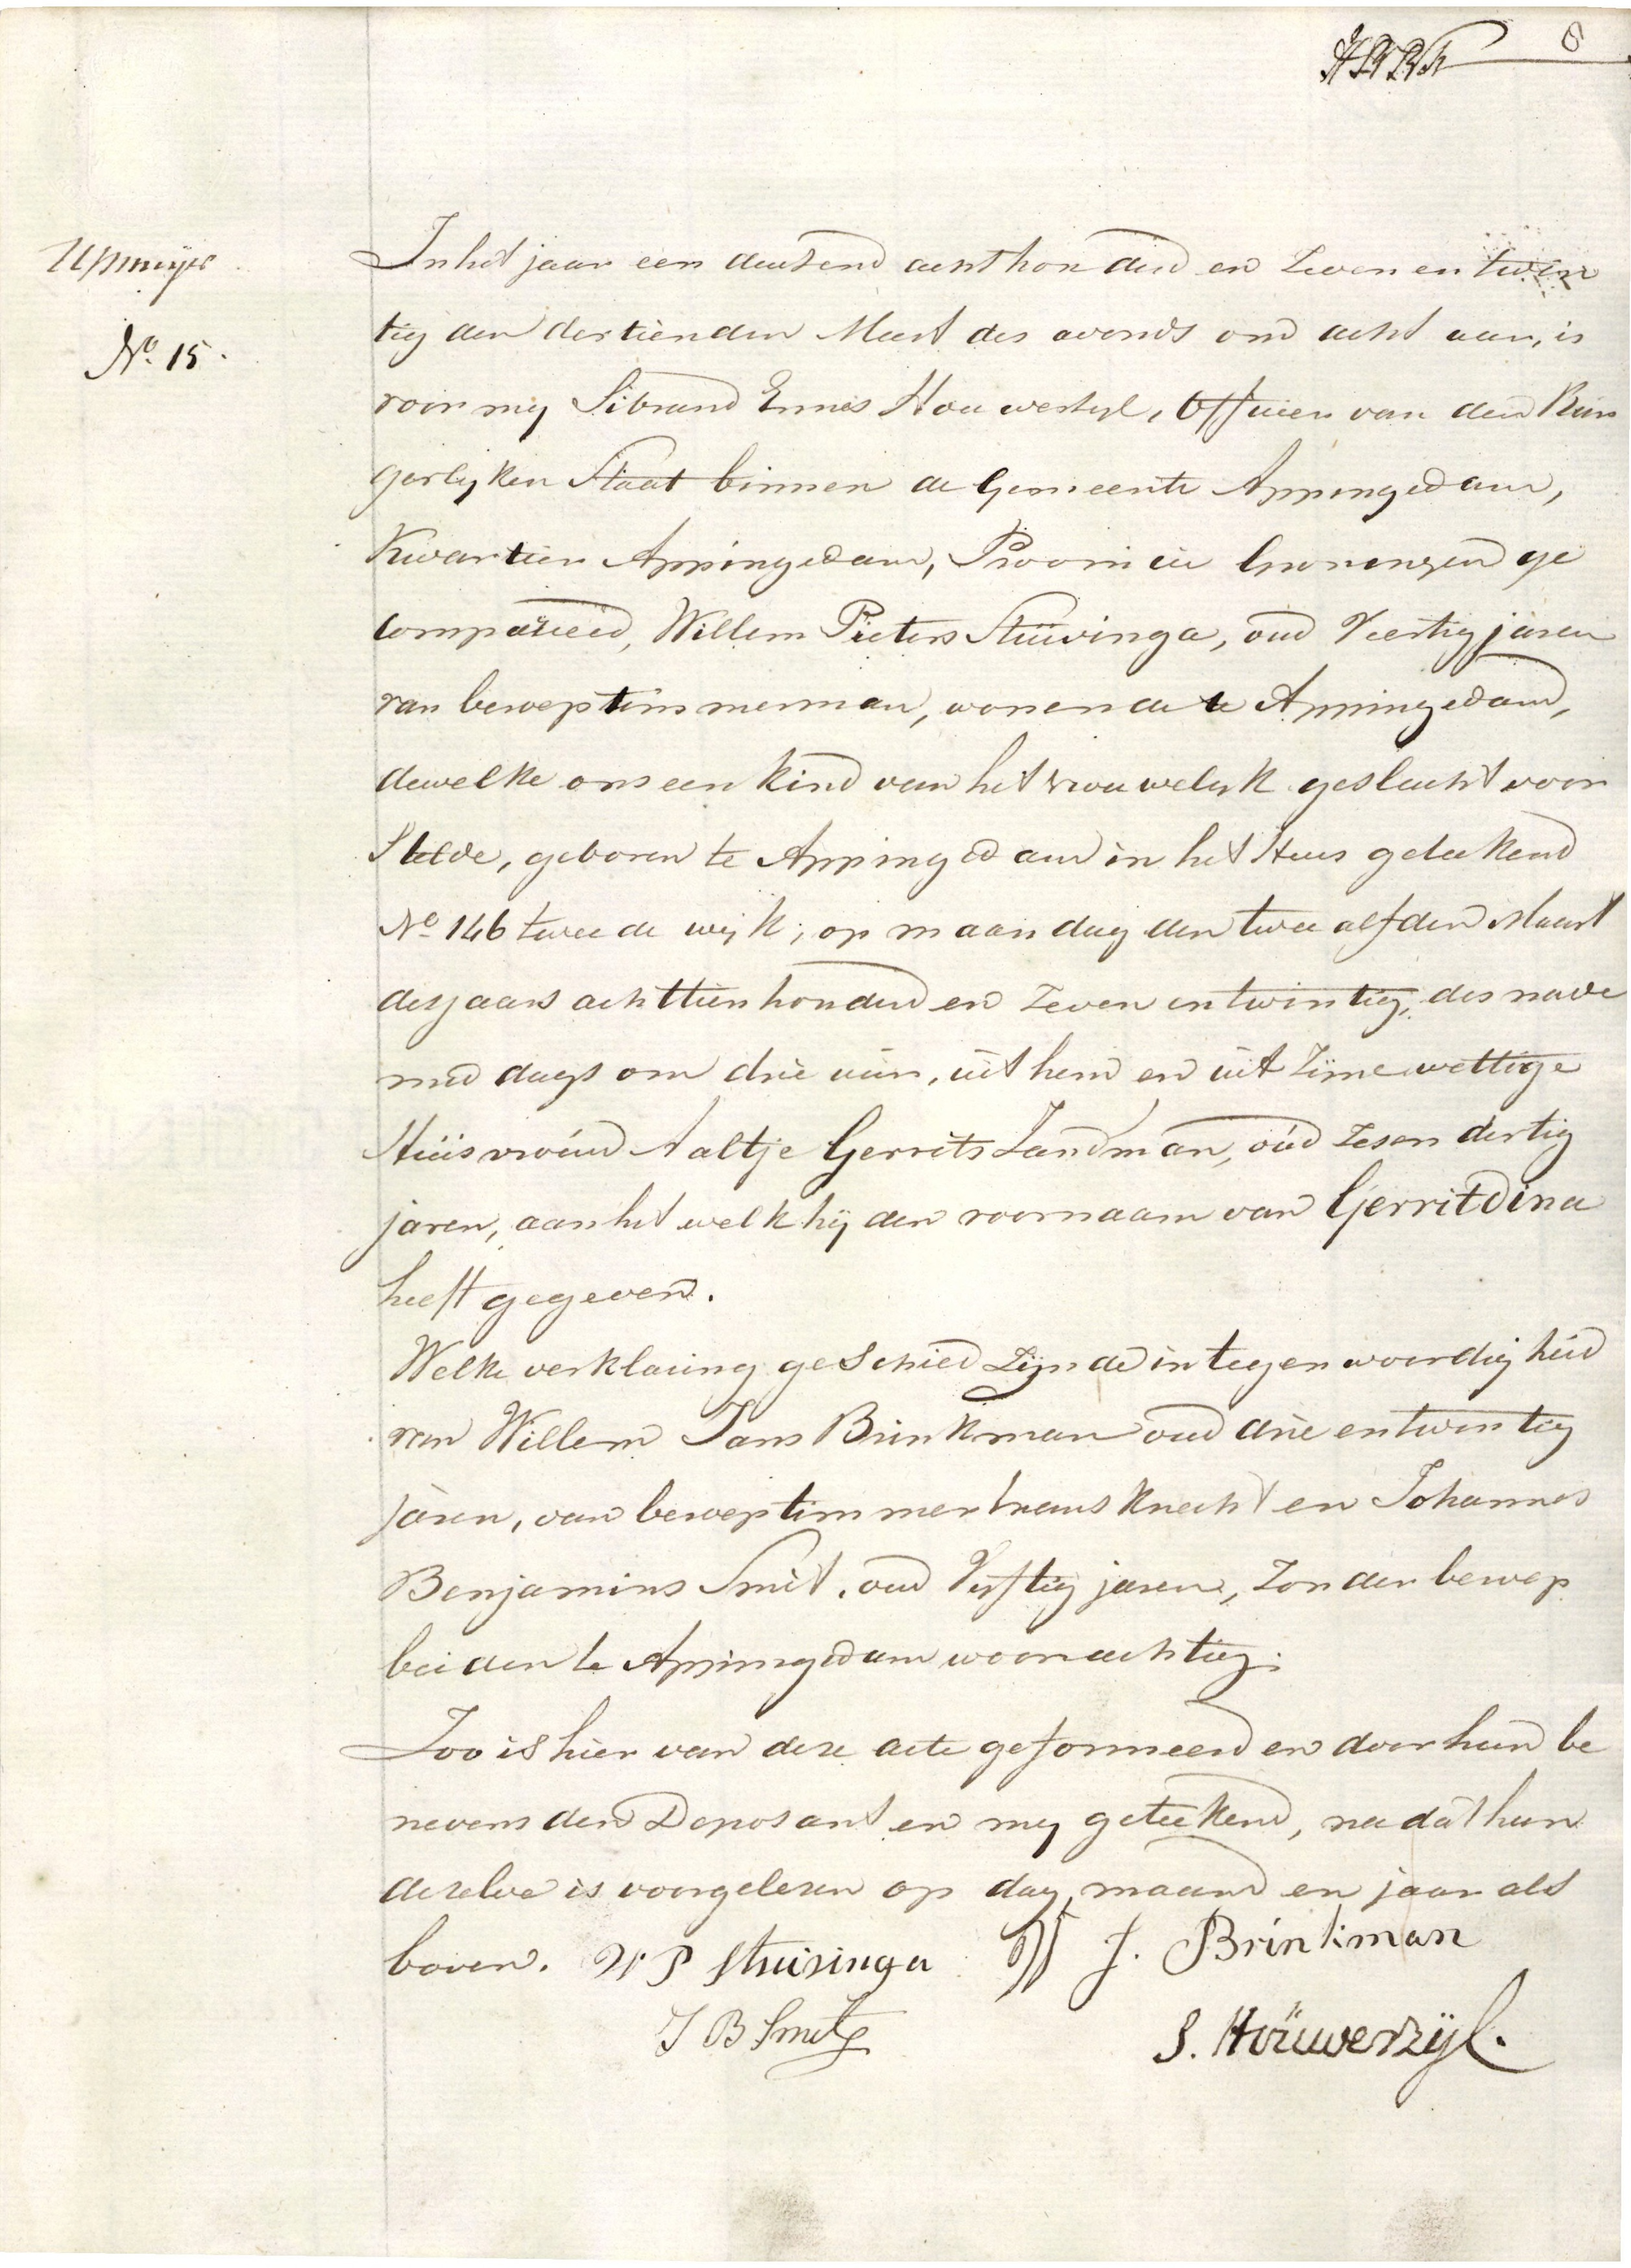 8
Upmeijer
No. 15.
In het jaar een duisend acht honderd en zeven en twin
tig den dertienden Maart des avonds om acht uur, is
voor my Sibrand Ennes Houwerzyl, Officier van den Bur
gerlyken Staat binnen de Gemeente Appingedam,
Kwartier Appingedam, Provincie Groningen ge
compareerd, Willem Pieters Stuivinga, oud Veertig jaren
van beroep timmerman, wonende te Appingedam,
dewelke ons een kind van het vrouwelyk geslacht voor
stelde, geboren te Appingedam in het Huis geteekend
No 146 tweede wyk; op maandag den twaalfden Maart
des jaars achttien honderd en zeven en twintig, des nade
mid dags om drie uur, uit hem en uit zijne wettige
Huisvrouw Aaltje Gerrits Landman, oud zes en dertig
jaren, aan het welk hij den voornaam van Gerritdina
heeft gegeven.
Welke verklaring geschied zijnde in tegenwoordigheid
van Willem Jans Brinkman oud drie en twintig
jaren, van beroep timmermans knecht en Johannes
Benjamins Smit, oud Vijftig jaren, zonder beroep
beiden te Appingedam woonachtig.
Zoo is hier van deze acte geformeerd en door hun be
nevens den Deposant en my geteekend, na dat hun
dezelve is voorgelezen op dag, maand en jaar als
boven. W P Stuivinga W J. Brinkman
J B Smit S. Houwerzijl.